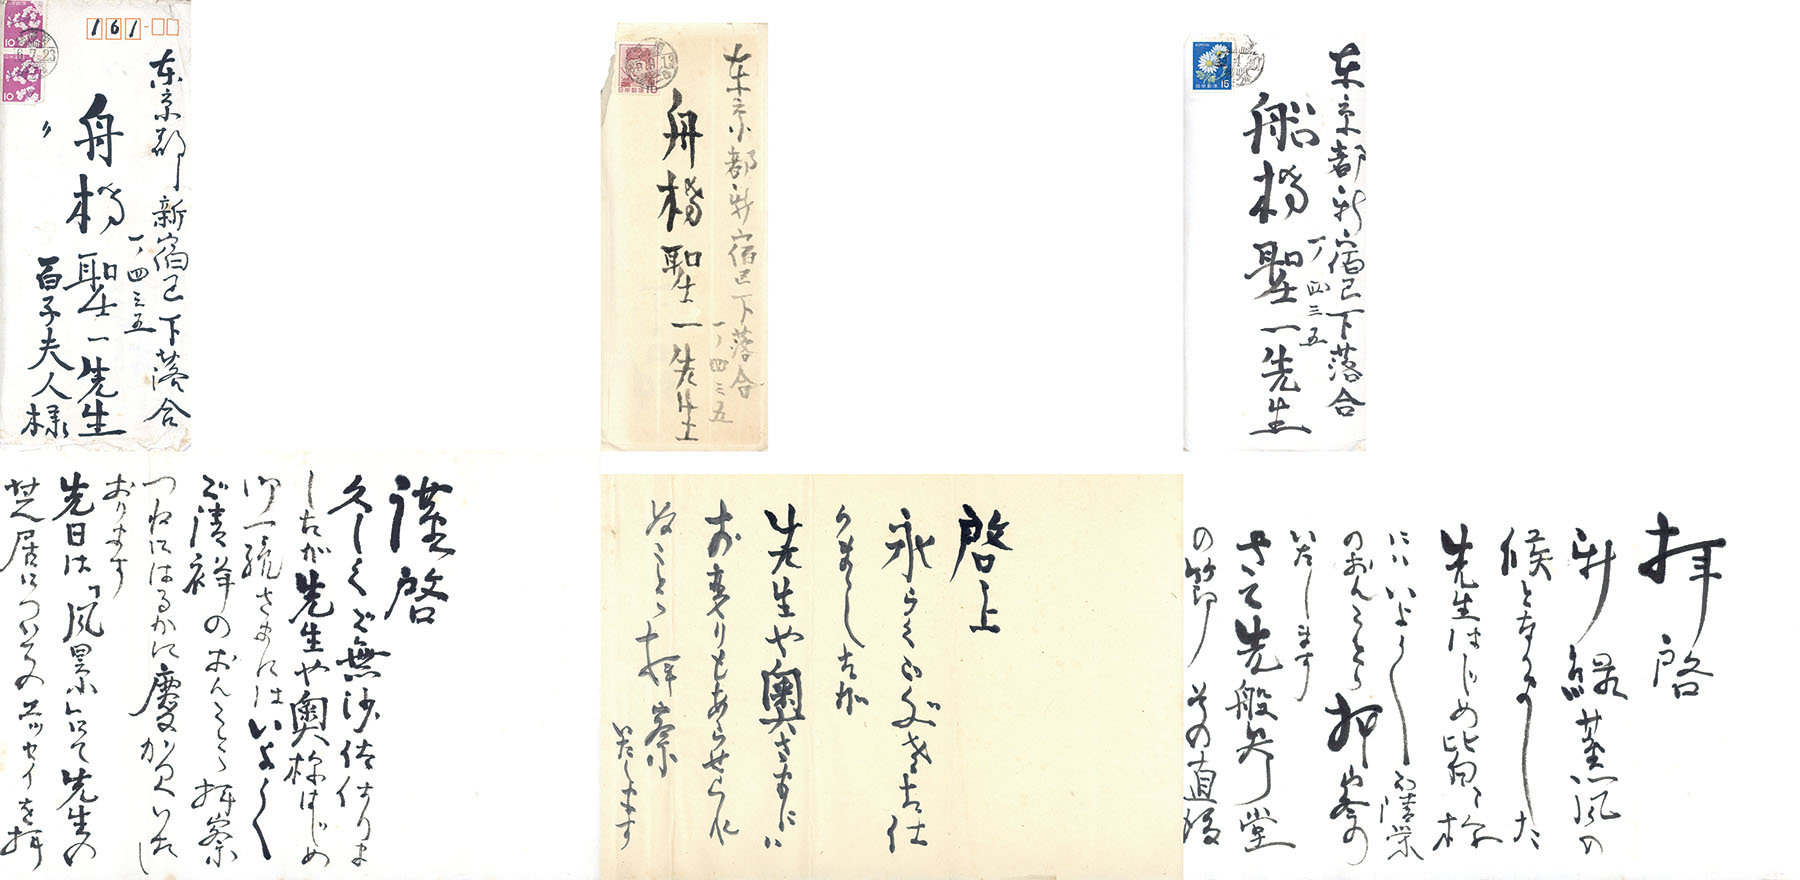 161
東京都新宿区下落合
一ノ四三五
舟橋聖一先生
〃 百子夫人様
謹啓
久しくご無沙佳仕りま
したが先生や奥様はじめ
御一統さまにはいよく
ご清祥のおんこと拝察
つねにはるかに慶賀いたし
おります
先日は「風景」にて先生の
芝居についてのエッセイを拝
10
東京都新宿区下落合
一ノ四三五
舟橋聖一先生
啓上
永らくご無さた仕
りましたが
先生や奥さまに
お変りもあらせられ
ぬことゝ拝察
いたします
NIPPON
15
東京都新宿区下落合
一ノ四三五
船橋聖一先生
拝啓
新緑薫風の
候となりました
先生はじめ皆々様
にはいよくご清栄
のおんことゝ拝察
いたします
さて先般参堂
の節 その直後